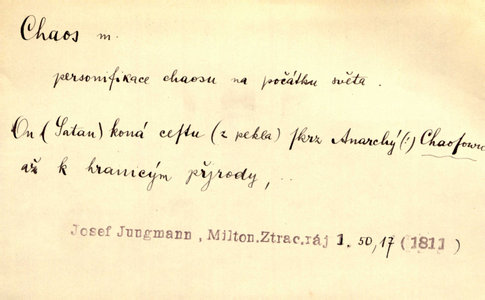 Chaos m.
personifikace chaosu na počátku světa.
On (Satan) koná ceſtu (z pekla) ſkrz Anarchý(!) Chaoſowu
až k hranicým přjrody, ..
Josef Jungmann, Milton.Ztrac.ráj 1. 50,17 (1811)